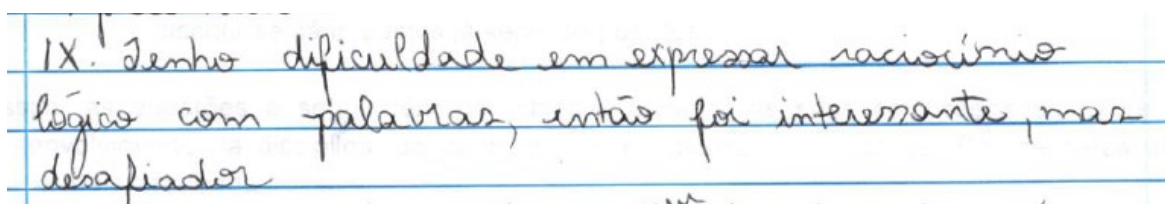 IX. Tenho dificuldade em expressar raciocínio
lógico com palavras, então foi interessante, mas
desafiador